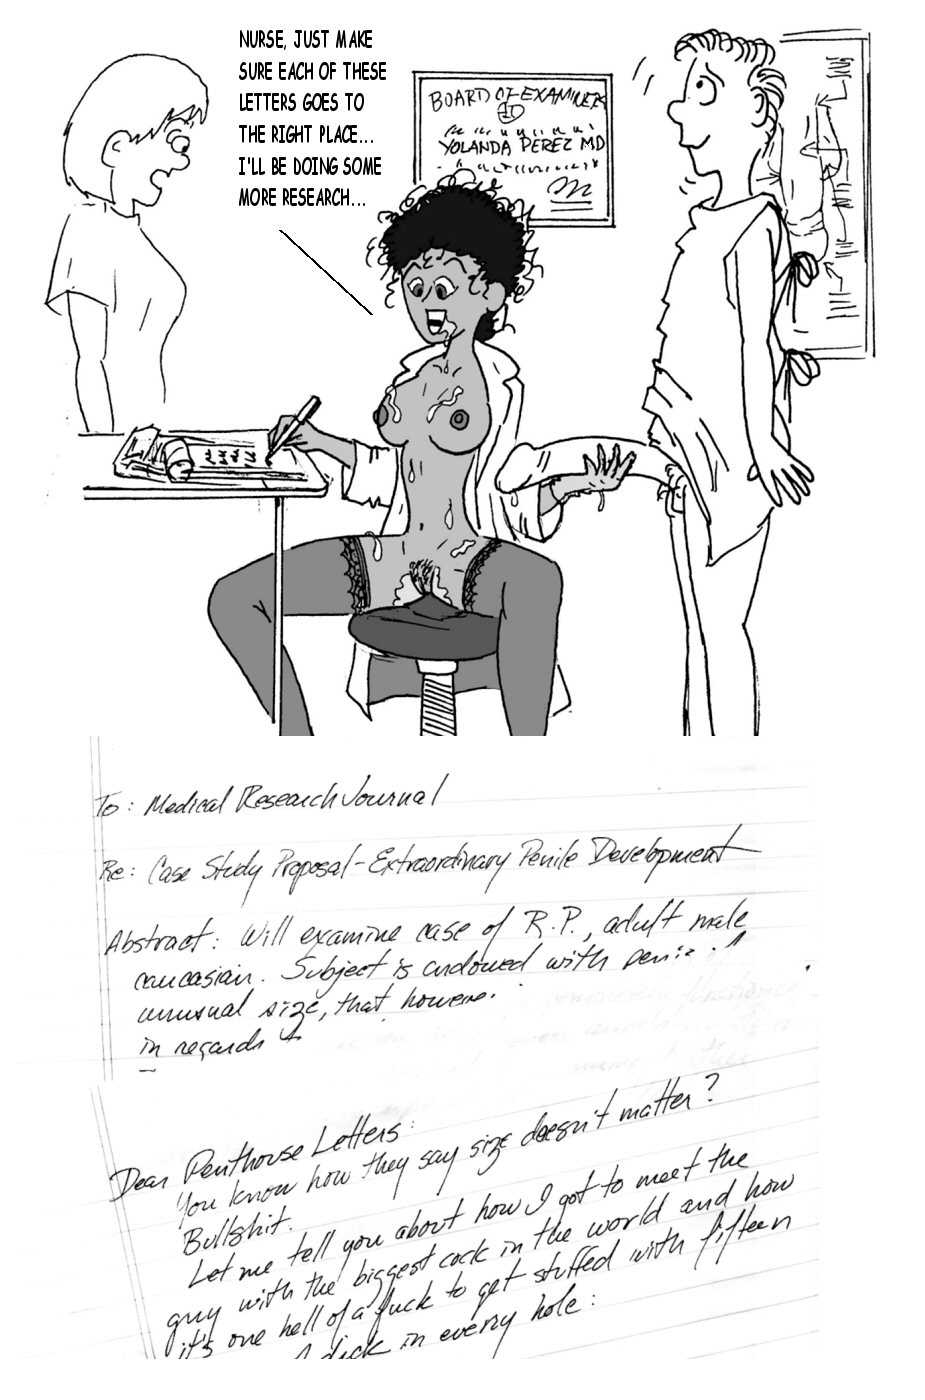 NURSE, JUST MAKE
SURE EACH OF THESE
LETTERS GOES TO
THE RIGHT PLACE...
I'LL BE DOING SOME
MORE RESEARCH...
BOARD OF EXAMINERS
YOLANDA PEREZ MD
To: Medical Research Journal
Re: Case Study Proposal - Extraordinary Penile Development
Abstract: Will examine case of R.P., adult male
caucasian. Subject is endowed with penis of
unusual size, that, however
in regards
Dear Penthouse Letters:
You know how they say size doesn't matter?
Bullshit.
Let me tell you about how I got to meet the
guy with the biggest cock in the world and how
it's one hell of a fuck to get stuffed with fifteen
dick in every hole: